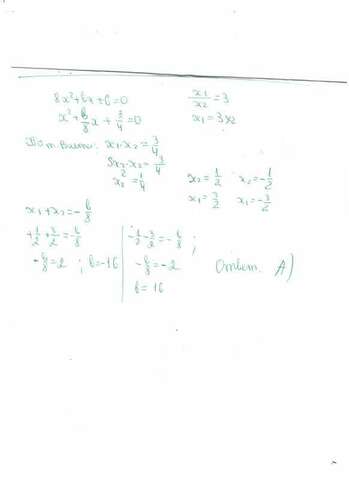 8x²+bx+6=0
x²+b/8x+3/4=0
x₁/x₂=3
x₁=3x₂
x₁·x₂=3/4
3x₂·x₂=3/4
x₂²=1/4
x₂=1/2 x₂=-1/2
x₁=3/2 x₁=-3/2
x₁+x₂=-b/8
+1/2+3/2=-b/8
-b/8=2; b=-16
-1/2-3/2=-b/8;
-b/8=-2
b=16
Ответ. А)